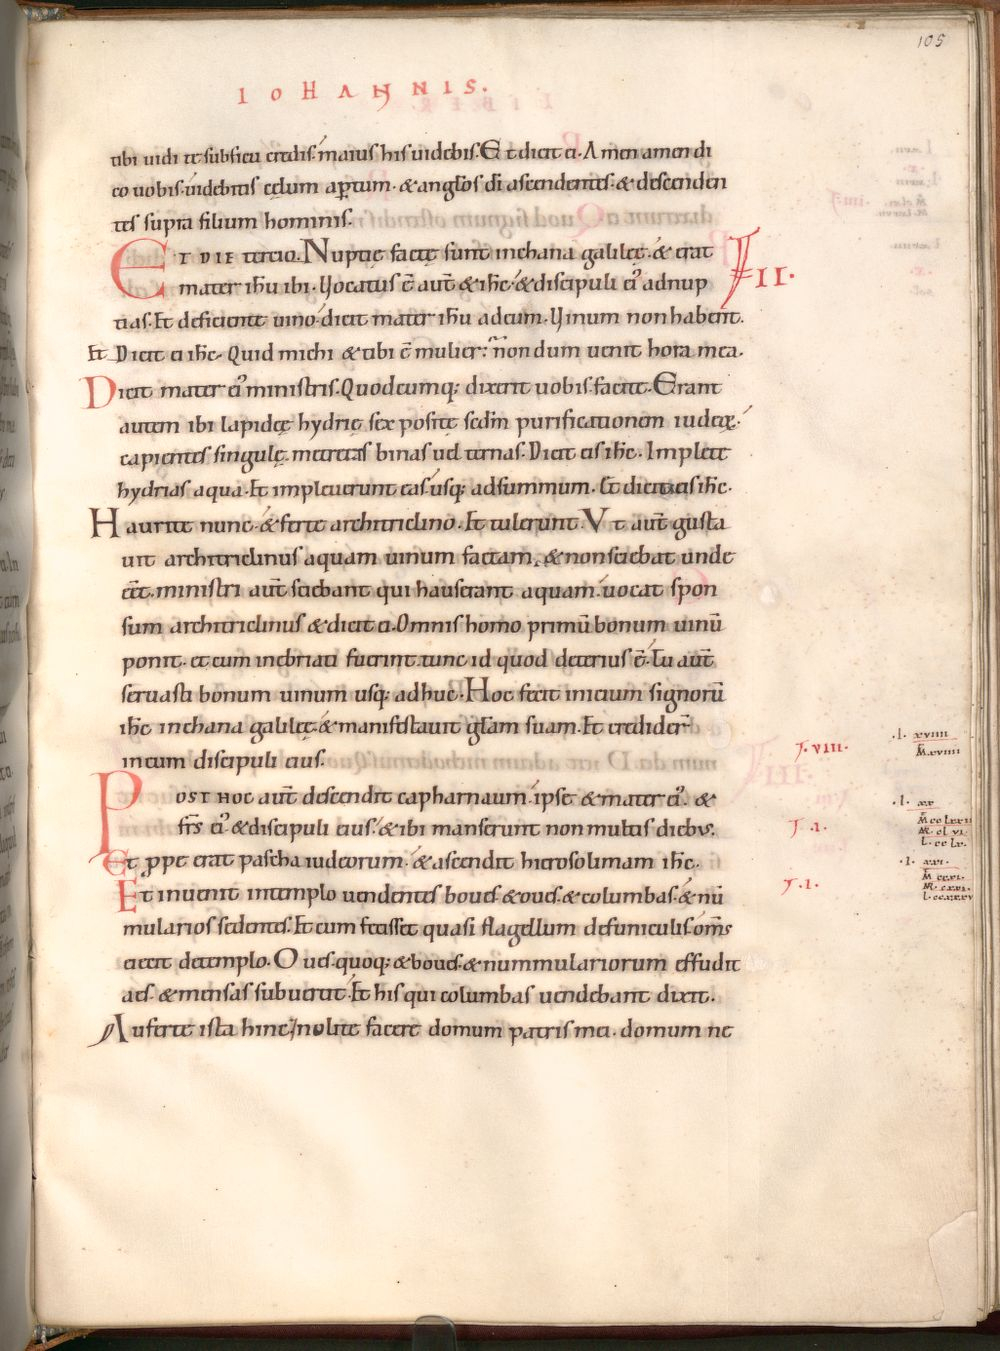 105
IOHANNIS.
tibi uidi te sub ficu credis. maius his uidebis. Et dicit ei. Amen amen di
co uobis. uidebitis cęlum aꝑtum. & angľos di ascendentes. & descenden
tes supra filium hominis.
ET DIE tercio. Nuptię factę sunt in chana galilęę. & erat
II.
mater ihu ibi. Uocatus ē aut̄ & ihc. & discipuli ei᾿ ad nup
tias. Et deficiente uino. dicit mater ihu ad eum. Uinum non habent.
Et Dicit ei ihc. Quid michi & tibi ē mulier: nondum uenit hora mea.
Dicit mater ei᾿ ministris. Quodcumq; dixerit uobis. facite. Erant
autem ibi lapideę hydrię sex positę scdm̄ purificationem iudeoꝝ.
capientes singulę. metretas binas uel ternas. Dicit eis ihc. Implete
hydrias aqua. Et impleuerunt eas usq; ad summum. Et dicit eis ihc.
Haurite nunc. & ferte architriclino. Et tulerunt. Vt aut̄ gusta
uit architriclinus aquam uinum factam. & non sciebat unde
eēt. ministri aut̄ sciebant qui hauserant aquam. uocat spon
sum architriclinus & dicit ei. Omnis homo primū bonum uinū
ponit. et cum inebriati fuerint. tunc id quod deterius ē. Tu aut̄
seruasti bonum uinum usq; adhuc. Hoc fecit inicium signorū
ihc in chana galilęę. & manifestauit gľam suam. Et credider̄
in eum discipuli eius.
.I. xviiii
VIII.
M̄. xviiii
POST HOC aut̄ descendit capharnaum. ipse & mater ei᾿. &
.I. xx
fr̄s ei᾿. & discipuli eius. & ibi manserunt non multis diebus.
I.
Et ꝓpe erat pascha iudeorum. & ascendit hierosolimam ihc.
.I. xxi.
Et inuenit in templo uendentes boues. & oues. & columbas. & nū
I.
mularios sedentes. Et cum fecisset quasi flagellum de funiculis. om̄s
eiecit de templo. Oues. quoq; & boues. & nummulariorum effudit
aes. & mensas subuertit. Et his qui columbas uendebant dixit.
Auferte ista hinc. Nolite facere domum patris mei. domum ne